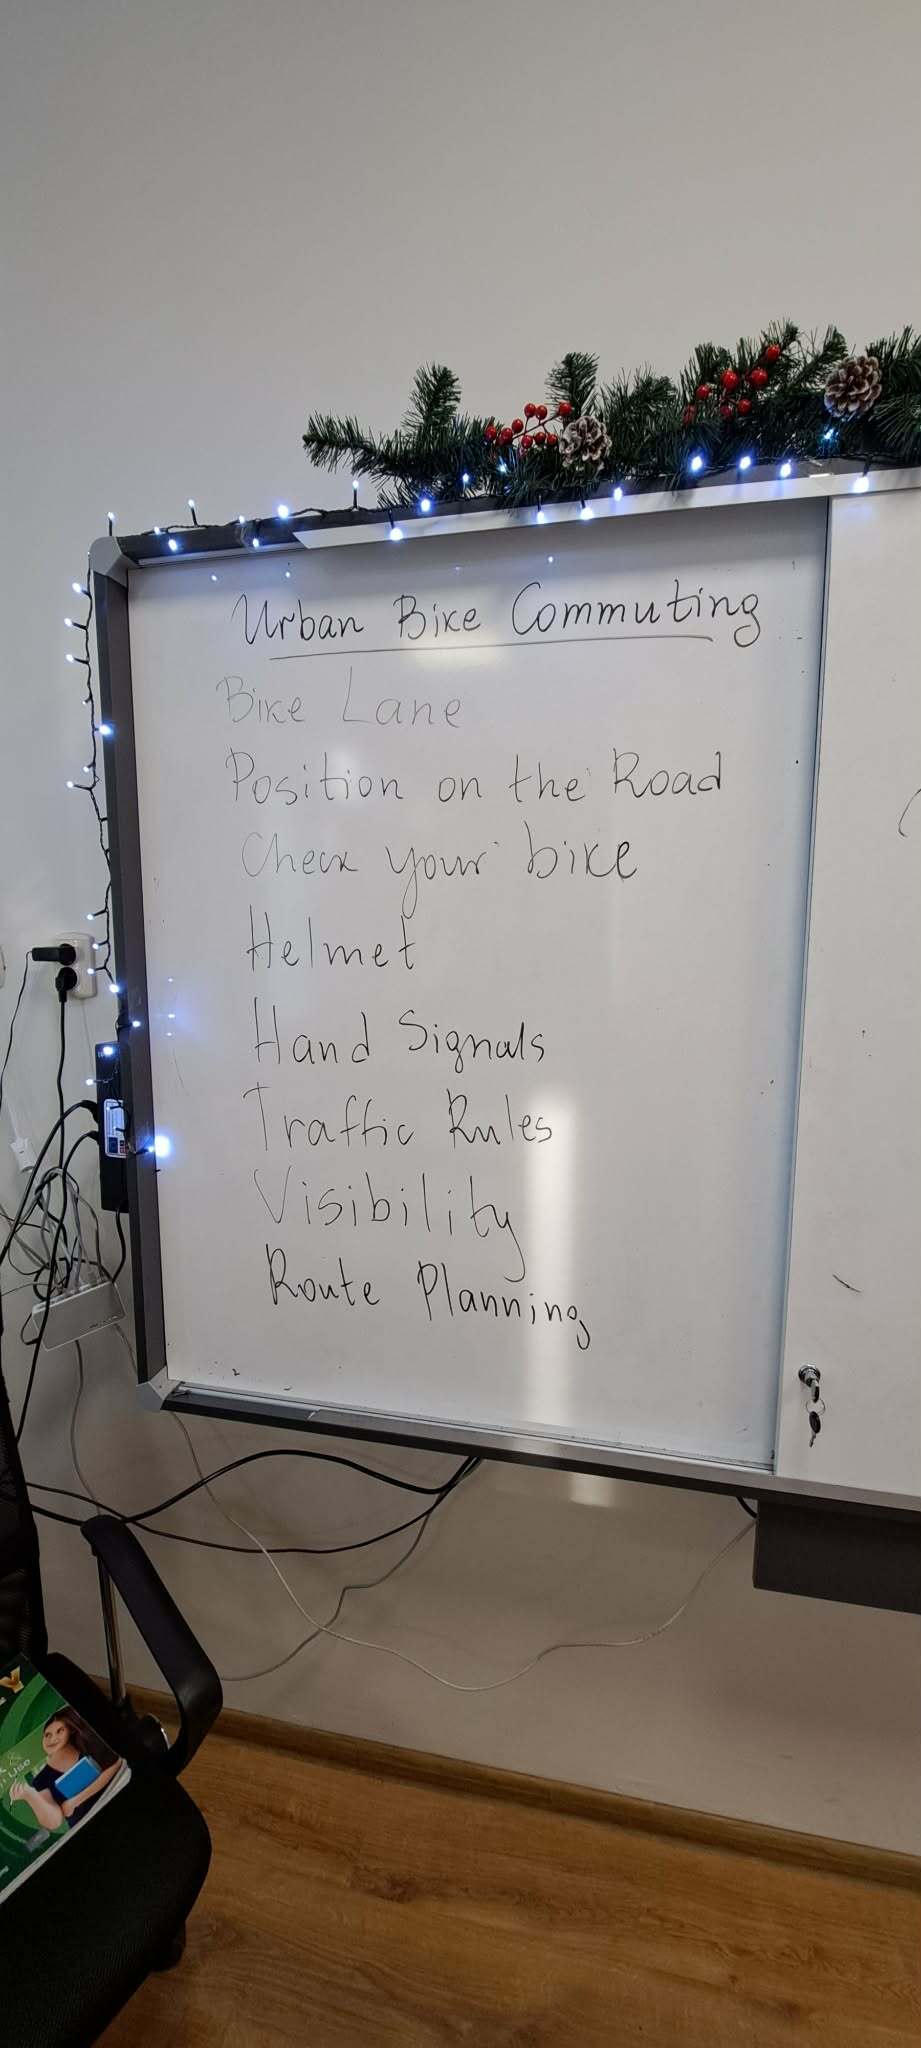 Urban Bike Commuting
Bike Lane
Position on the Road
Check your bike
Helmet
Hand Signals
Traffic Rules
Visibility
Route Planning
Y
&
Use